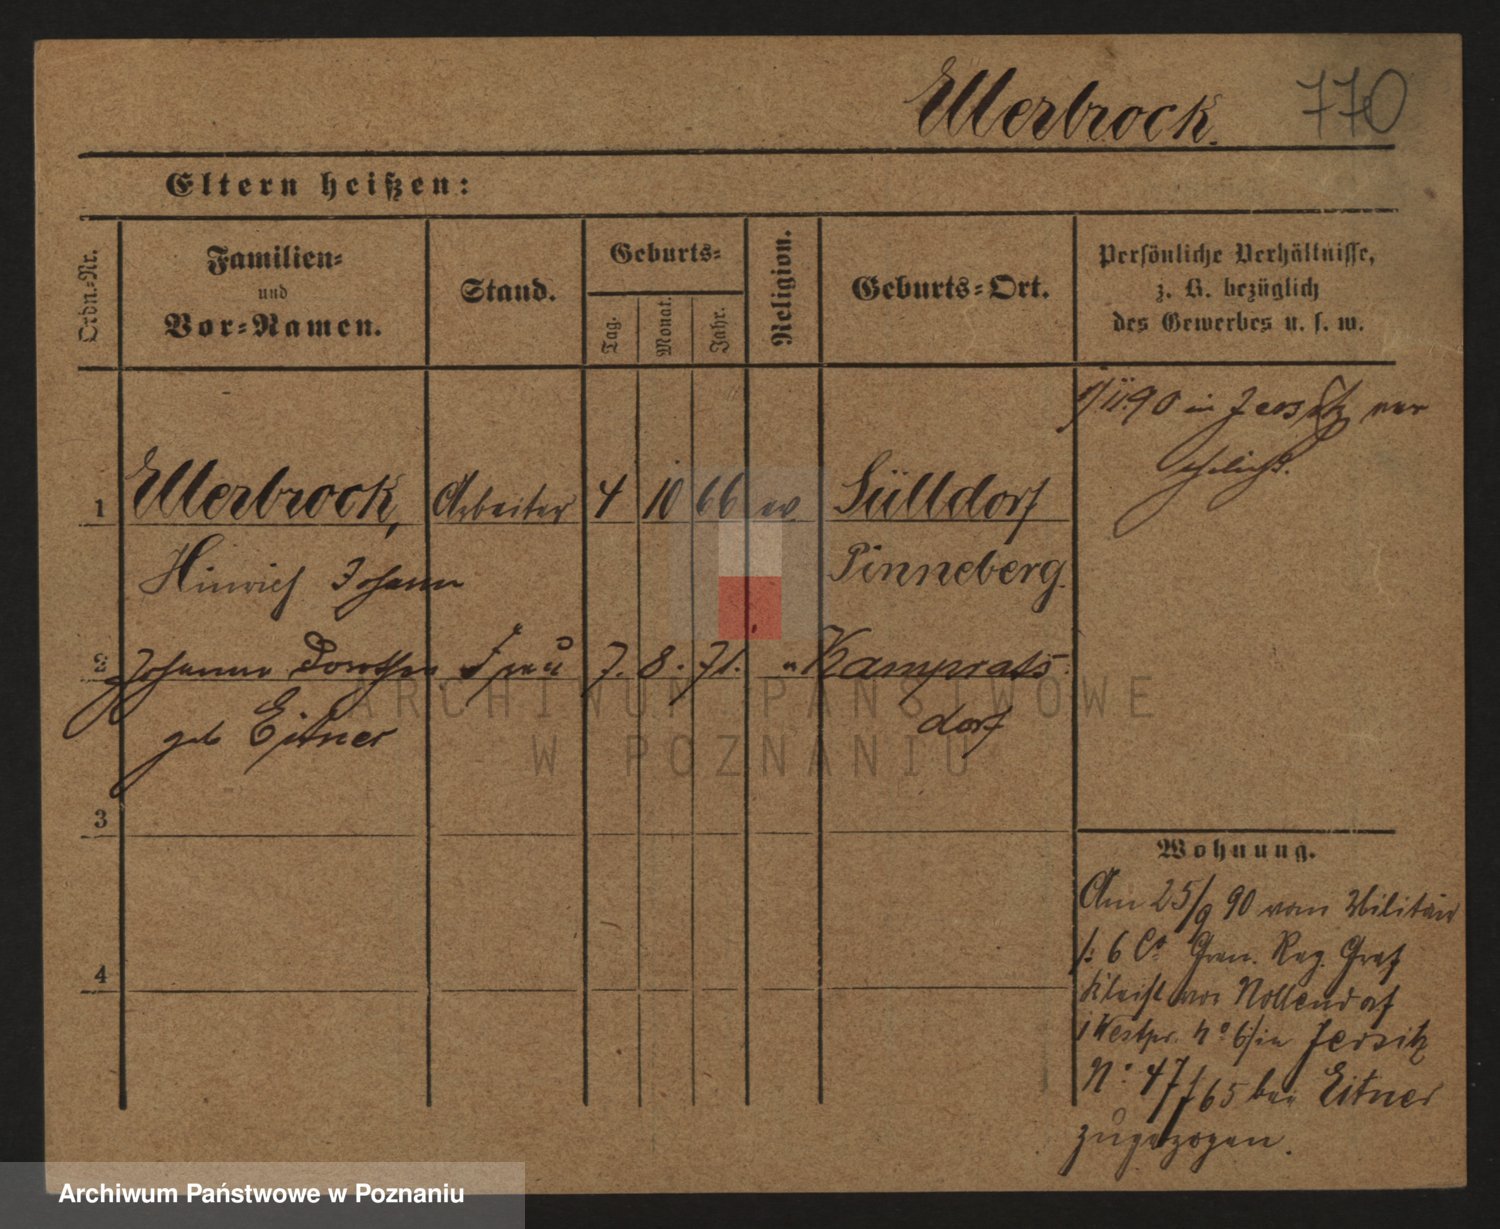 Ellerbrock. 770
Eltern heißen:
Ordn.-Nr.
Familien-
und
Vor-Namen.
Stand.
Geburts-
Tag.
Monat.
Jahr.
Religion.
Geburts-Ort.
Persönliche Verhältnisse,
z. B. bezüglich
des Gewerbes u. s. w.
90 in Jersitz ver
ehelicht.
1 Ellerbrock, Arbeiter 4 10 66 ev Sülldorf
Hinrich Johann Pinneberg.
2 Johanne Dorothea Frau 7. 8. 71. " Kamprats
geb Eitner dorf
3
4
Wohnung.
Am 25/9 90 vom Militär
/: 6 Co Gren. Reg. Graf
Kleist von Nollendorf
Westpr. No 6/ in Jersitz
No 47/65 bei Eitner
zugezogen.
ARCHIWUM PAŃSTWOWE
W POZNANIU
Archiwum Państwowe w Poznaniu